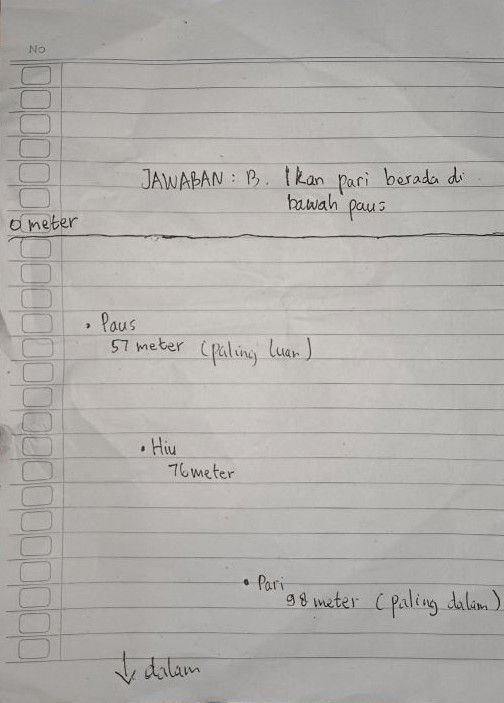 NO
JAWABAN : B. Ikan pari berada di
bawah paus
0 meter
• Paus
57 meter (paling luar)
• Hiu
76 meter
• Pari
98 meter (paling dalam)
↓ dalam